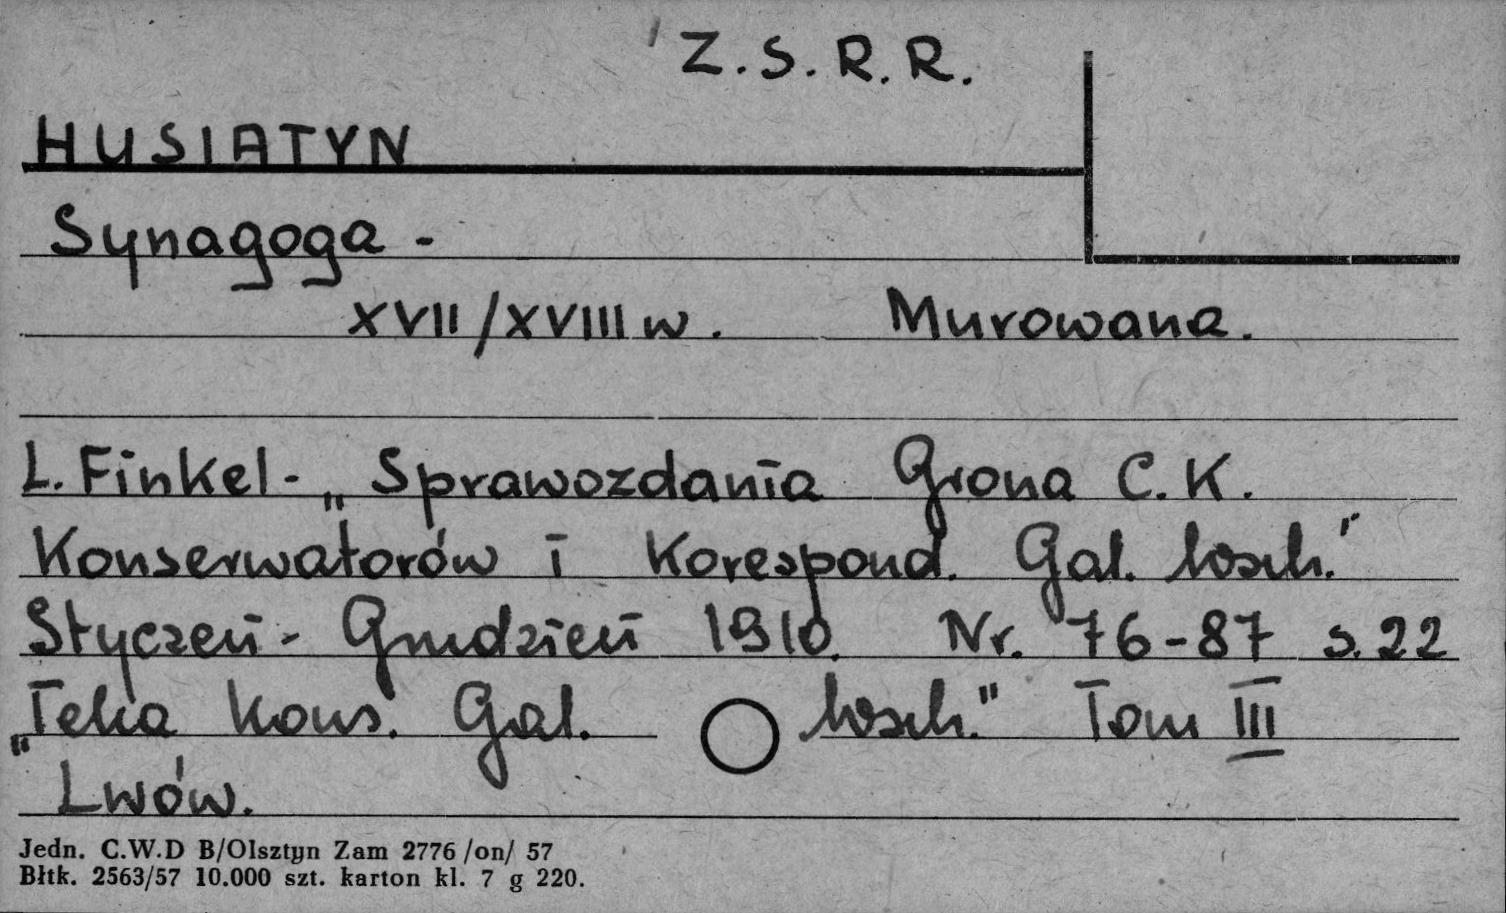 Z. S. R. R.
HUSIATYN
Synagoga -
XVII/XVIII w. Murowana.
L. Finkel - „Sprawozdania Grona C. K.
Konserwatorów i Korespond. Gal. Wsch."
Styczeń - Grudzień 1910. Nr. 76-87 s. 22
„Teka Kons. Gal. Wsch." Tom III
Lwów.
Jedn. C.W.D B/Olsztyn Zam 2776 /on/ 57
Błtk. 2563/57 10.000 szt. karton kl. 7 g 220.